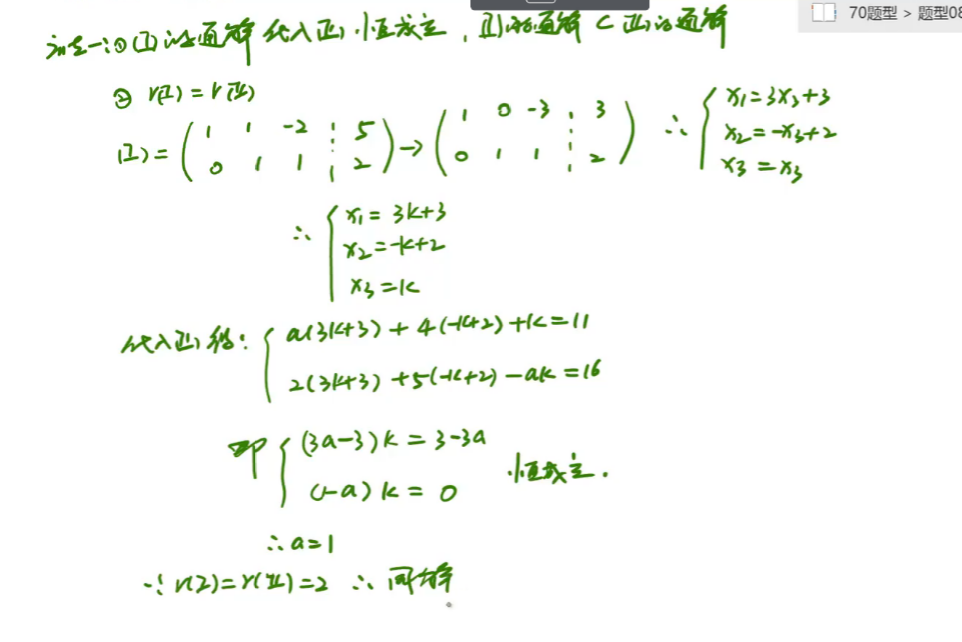 70题型 > 题型08
方法一:① (I)的通解代入(II),恒成立,(I)的通解⊂(II)的通解
② r(I) = r(II)
(I) = ( 1 1 -2 ⋮ 5 → ( 1 0 -3 ⋮ 3 ∴ { x1 = 3x3+3
0 1 1 ⋮ 2 ) 0 1 1 ⋮ 2 ) x2 = -x3+2
x3 = x3
∴ { x1 = 3k+3
x2 = -k+2
x3 = k
代入(II)得: { a(3k+3) + 4(-k+2) + k = 11
2(3k+3) + 5(-k+2) - ak = 16
即 { (3a-3)k = 3-3a
(1-a)k = 0 恒成立.
∴ a=1
∵ r(I) = r(II) = 2 ∴ 同解